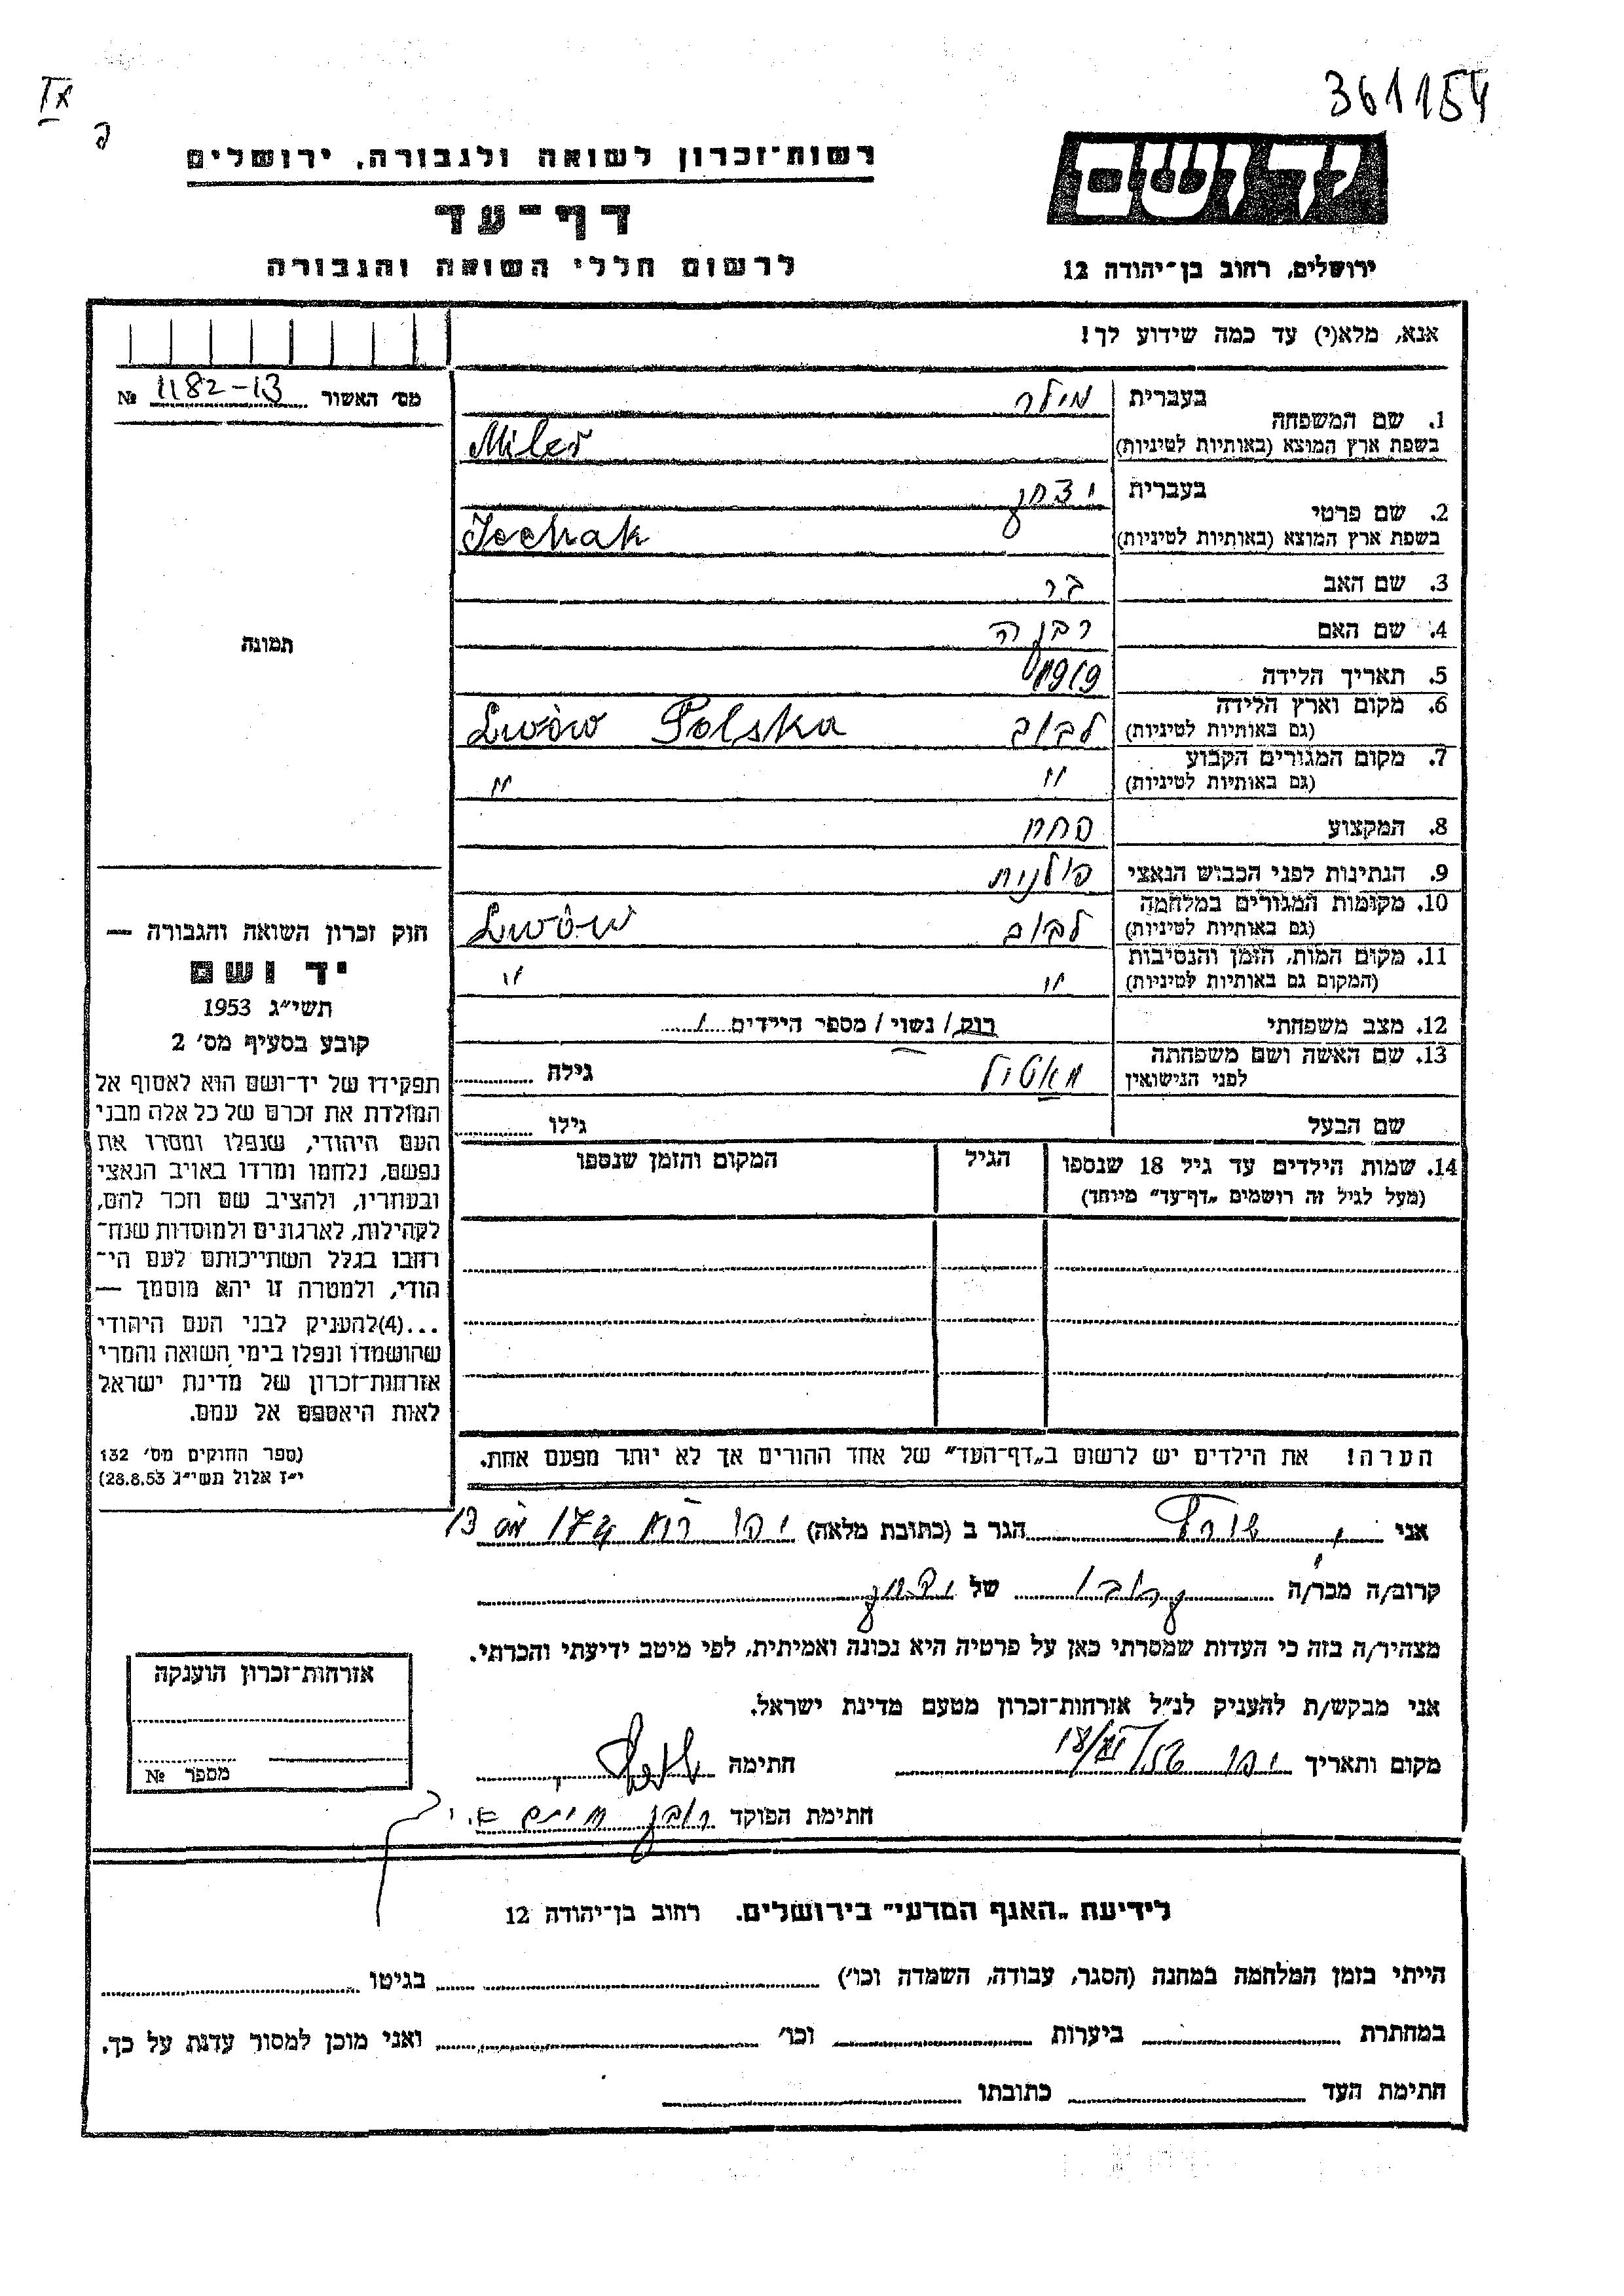 361154
IX
יד ושם
רשות־זכרון לשואה ולגבורה, ירושלים
דף־עד
ירושלים, רחוב בן־יהודה 12
לרשום חללי השואה והגבורה
אנא, מלא(י) עד כמה שידוע לך!
מס׳ האשור № 1182-13
תמונה
1. שם המשפחה
בעברית מילר
בשפת ארץ המוצא (באותיות לטיניות) Miler
2. שם פרטי
בעברית יצחק
בשפת ארץ המוצא (באותיות לטיניות) Icchak
3. שם האב
4. שם האם רבקה
5. תאריך הלידה 1919
6. מקום וארץ הלידה
(גם באותיות לטיניות) לבוב Lwów Polska
7. מקום המגורים הקבוע
(גם באותיות לטיניות) " "
8. המקצוע
9. הנתינות לפני הכבוש הנאצי פולנית
10. מקומות המגורים במלחמה
(גם באותיות לטיניות) לבוב Lwów
11. מקום המות, הזמן והנסיבות
(המקום גם באותיות לטיניות) " "
12. מצב משפחתי רוק / נשוי / מספר הילדים 1
13. שם האשה ושם משפחתה
לפני הנישואין גילה
שם הבעל גילו
14. שמות הילדים עד גיל 18 שנספו הגיל המקום והזמן שנספו
(מעל לגיל זה רושמים „דף־עד״ מיוחד)
הערה! את הילדים יש לרשום ב„דף־העד״ של אחד ההורים אך לא יותר מפעם אחת.
חוק זכרון השואה והגבורה —
יד ושם
תשי״ג 1953
קובע בסעיף מס׳ 2
תפקידו של יד־ושם הוא לאסוף אל
המולדת את זכרם של כל אלה מבני
העם היהודי, שנפלו ומסרו את
נפשם, נלחמו ומרדו באויב הנאצי
ובעוזריו, ולהציב שם וזכר להם,
לקהילות, לארגונים ולמוסדות שנח־
רחבו בגלל השתייכותם לעם הי־
הודי, ולמטרה זו יהא מוסמך —
...(4)להעניק לבני העם היהודי
שהושמדו ונפלו בימי השואה והמרי
אזרחות־זכרון של מדינת ישראל
לאות היאספם אל עמם.
(ספר החוקים מס׳ 132
י״ז אלול תשי״ג 28.8.53)
אני הגר ב (כתובת מלאה) יפו 13
קרוב/ה מכר/ה קרובו של יצחק
מצהיר/ה בזה כי העדות שמסרתי כאן על פרטיה היא נכונה ואמיתית, לפי מיטב ידיעתי והכרתי.
אני מבקש/ת להעניק לנ״ל אזרחות־זכרון מטעם מדינת ישראל.
מקום ותאריך יפו חתימה
חתימת הפוקד ראובן
אזרחות־זכרון הוענקה
מספר №
לידיעת „האגף המדעי״ בירושלים. רחוב בן־יהודה 12
הייתי בזמן המלחמה במחנה (הסגר, עבודה, השמדה וכו׳) בגיטו
במחתרת ביערות וכו׳ ואני מוכן למסור עדות על כך.
חתימת העד כתובתו